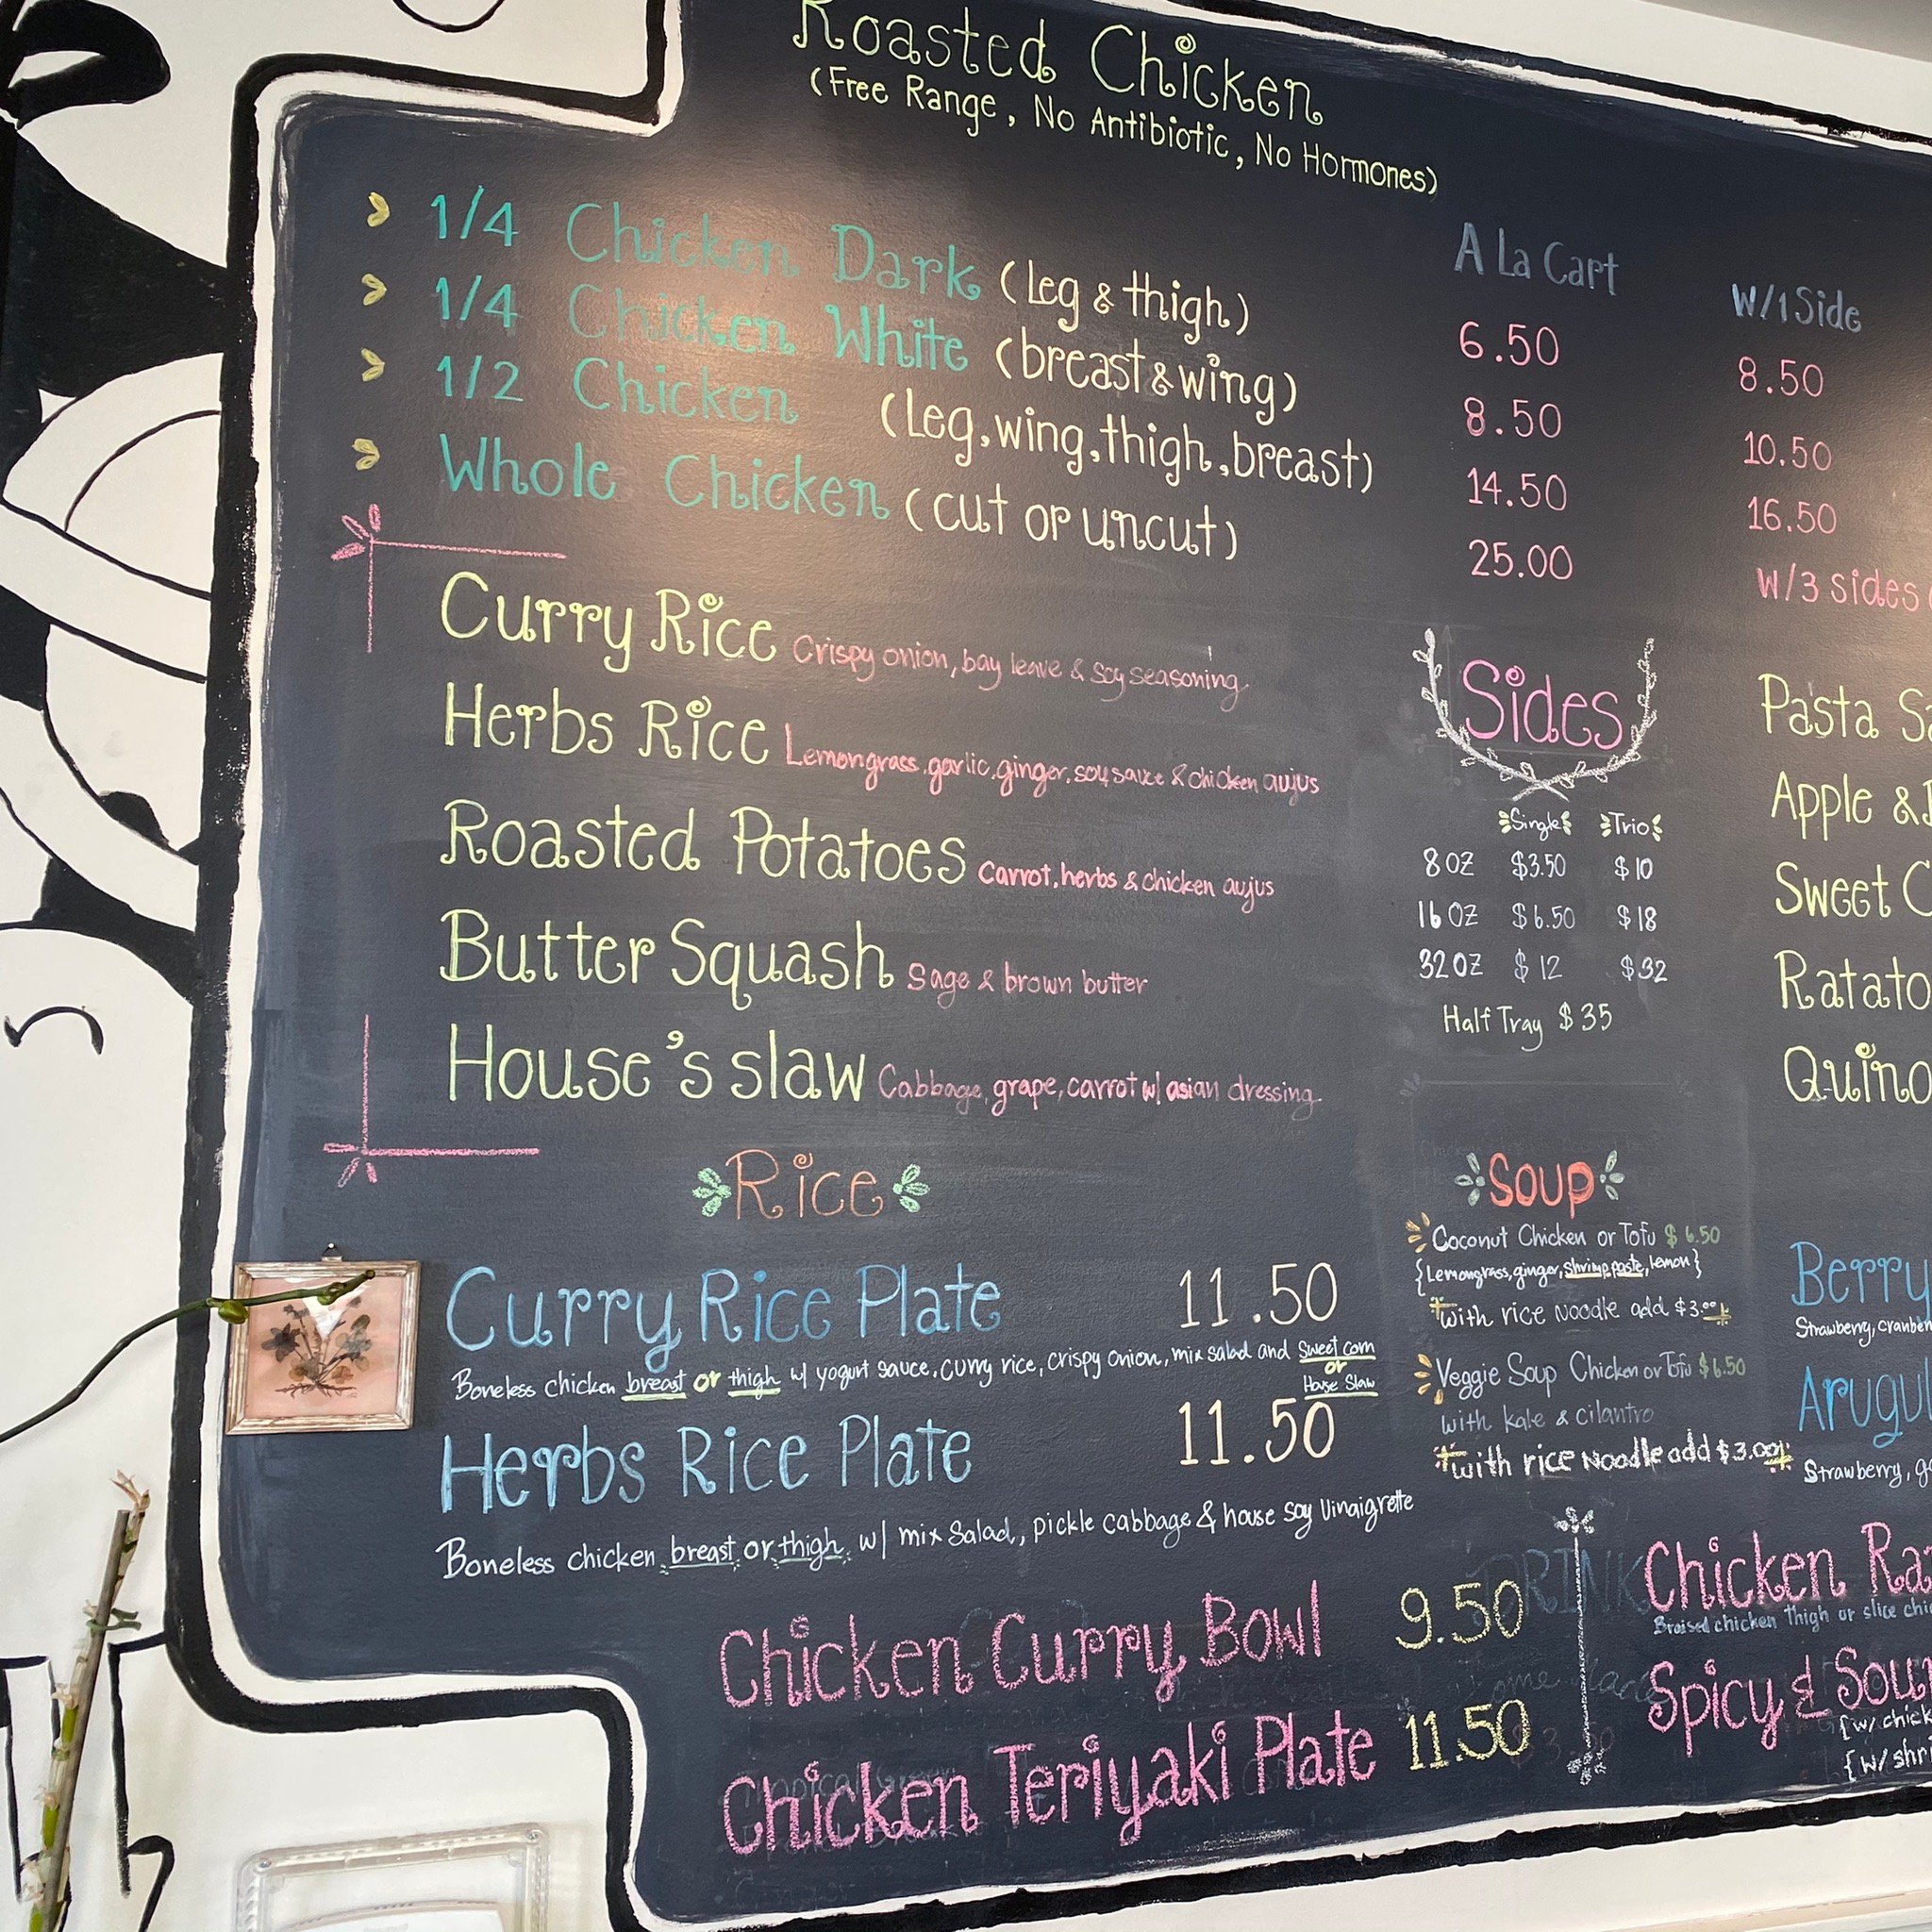 Roasted Chicken
(Free Range, No Antibiotic, No Hormones)
A La Cart
W/1 Side
1/4 Chicken Dark (leg & thigh) 6.50 8.50
1/4 Chicken White (breast & wing) 8.50 10.50
1/2 Chicken (Leg, wing, thigh, breast) 14.50 16.50
Whole Chicken (cut or uncut) 25.00 W/3 sides
Curry Rice Crispy onion, bay leave & soy seasoning
Herbs Rice Lemongrass, garlic, ginger, soy sauce & chicken aujus
Roasted Potatoes Carrot, herbs & chicken aujus
Butter Squash Sage & brown butter
House's slaw Cabbage, grape, carrot w/ asian dressing
Sides
Single Trio
8 OZ $3.50 $10
16 OZ $6.50 $18
32 OZ $12 $32
Half Tray $35
Pasta
Apple &
Sweet
Rice
Curry Rice Plate 11.50
Boneless chicken breast or thigh w/ yogurt sauce, curry rice, crispy onion, mix salad and Sweet corn
or
House Slaw
Herbs Rice Plate 11.50
Boneless chicken breast or thigh w/ mix Salad, pickle cabbage & house soy Vinaigrette
Soup
Coconut Chicken or Tofu $6.50
{Lemongrass, ginger, shrimp paste, lemon}
with rice noodle add $3.00
Veggie Soup Chicken or Tofu $6.50
with kale & cilantro
with rice noodle add $3.00
Berry
Strawberry,
Strawberry,
Chicken Curry Bowl 9.50
Chicken Teriyaki Plate 11.50
DRINK
Chicken
Braised chicken thigh or slice
Spicy &
{w/
{w/